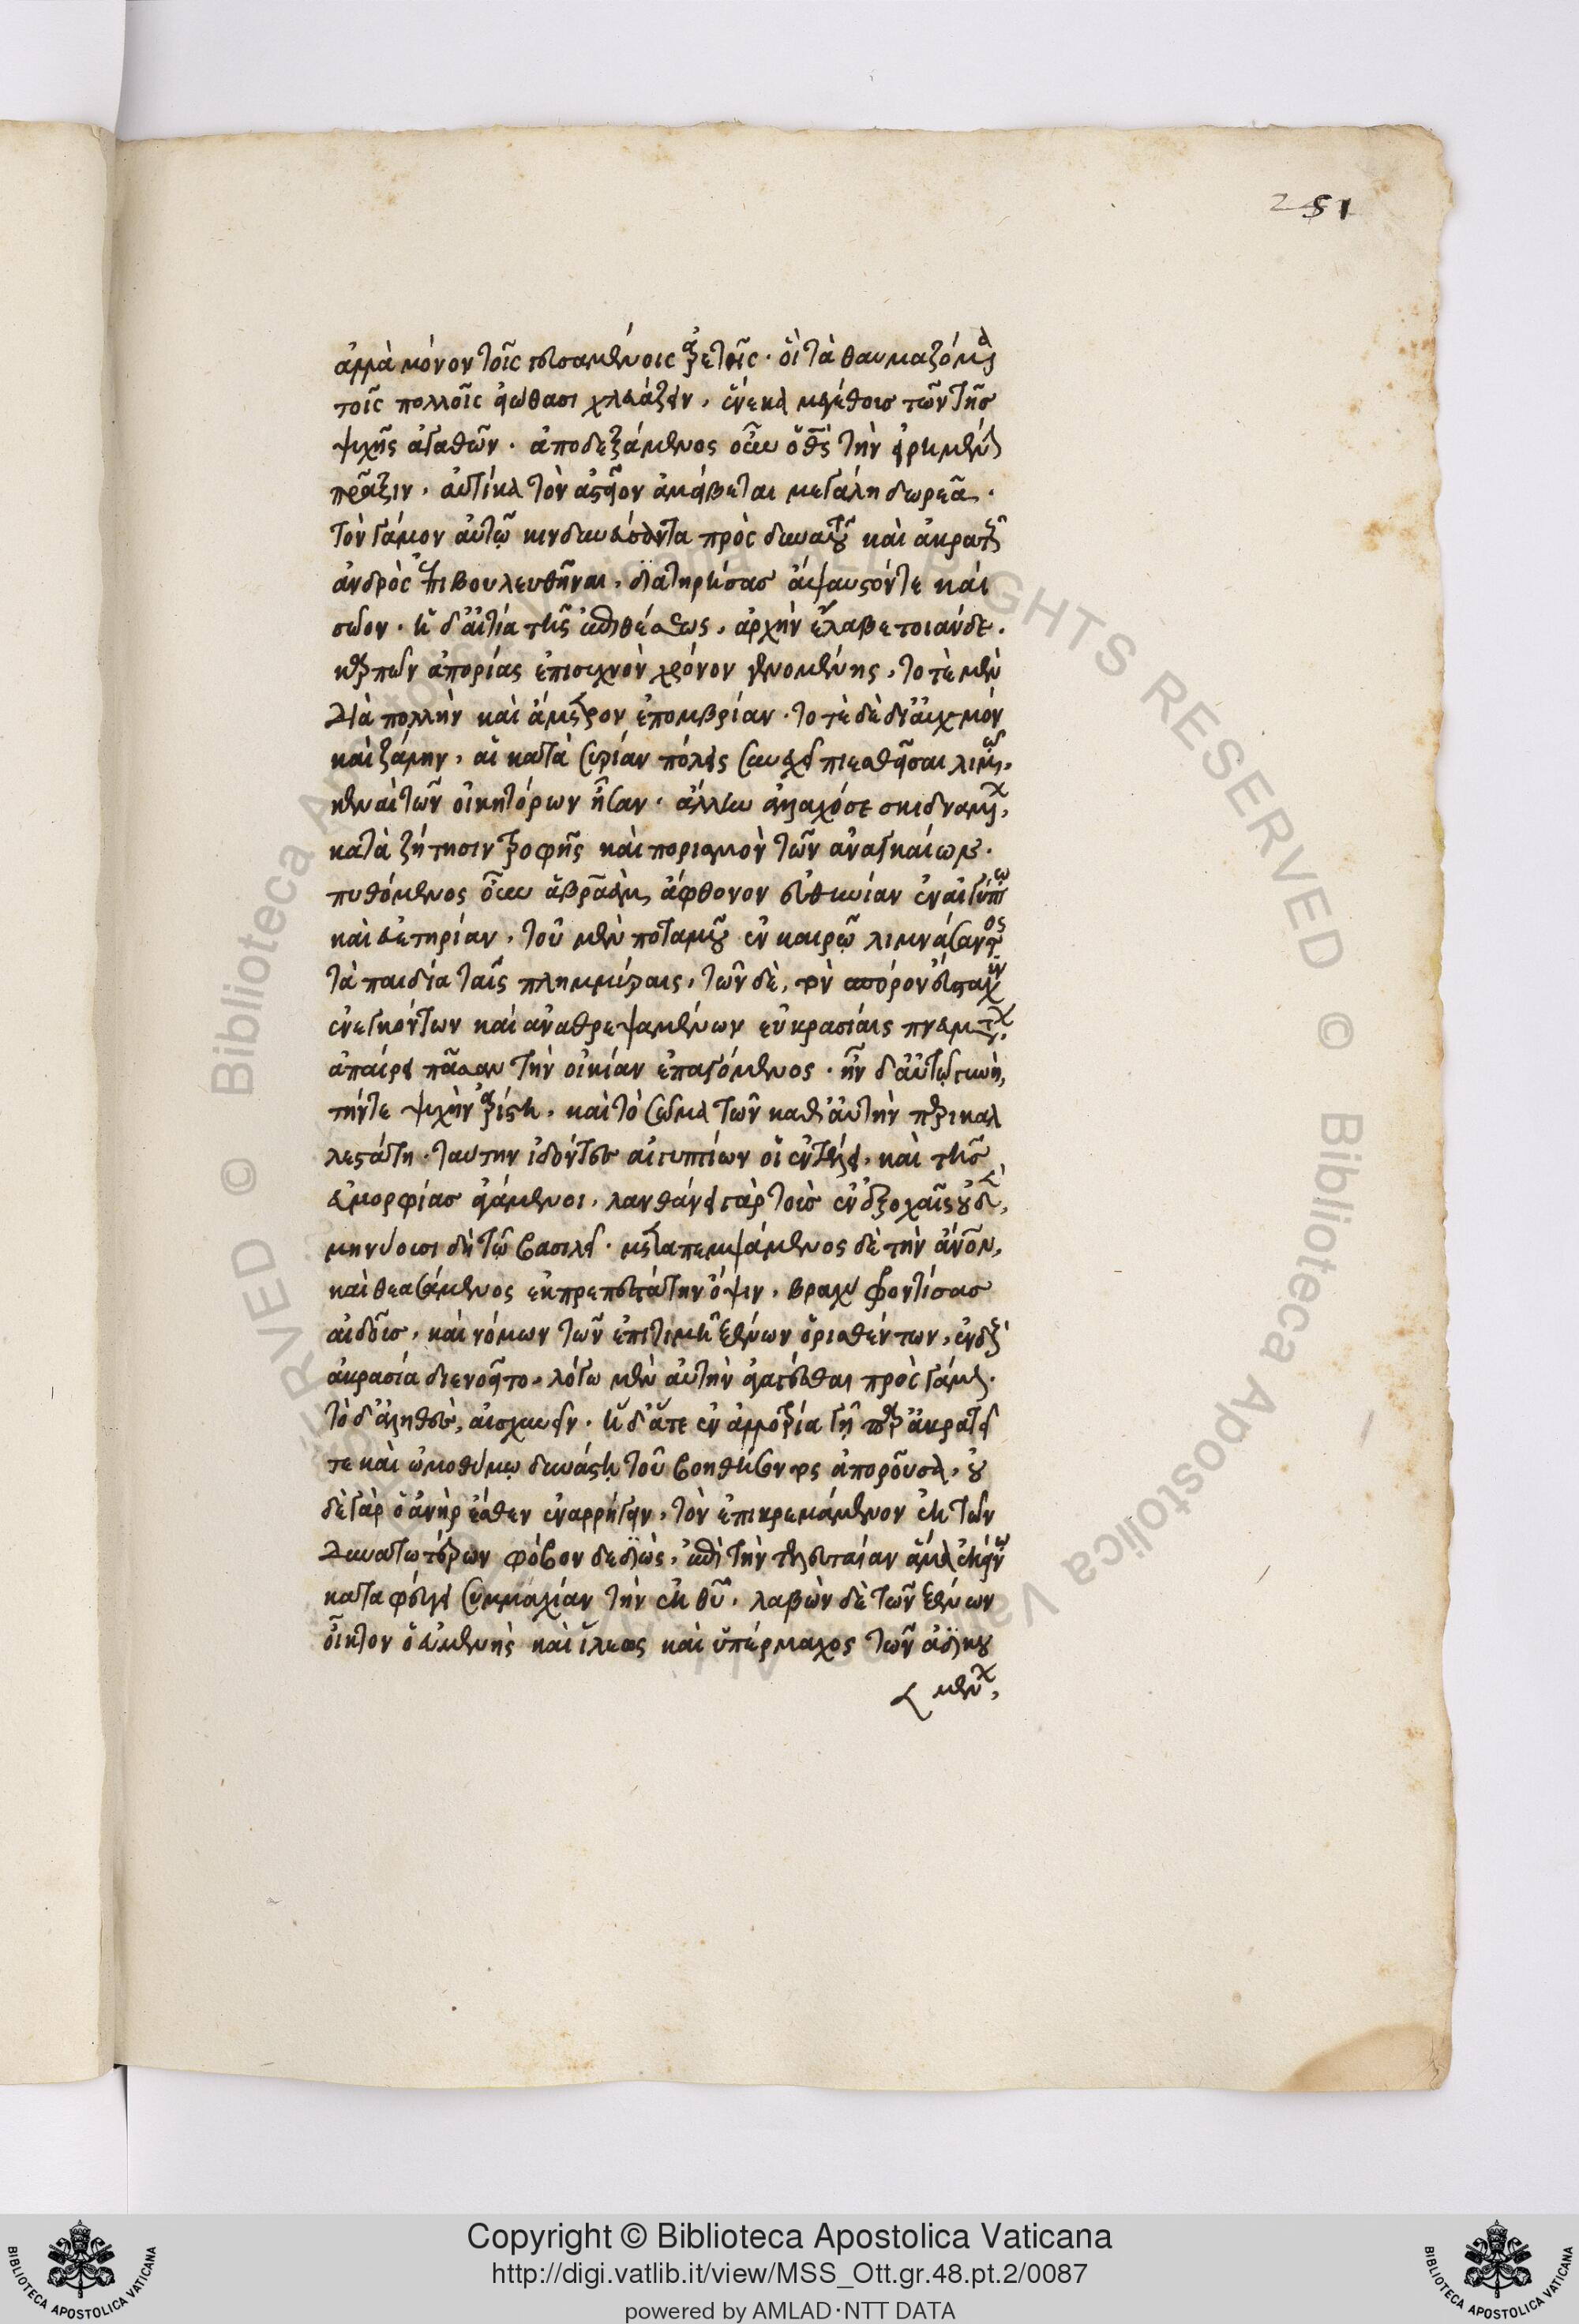 251
ἀλλὰ μόνον τοῖς τισαμένοις ἀρετῆς. οἳ τὰ θαυμαζόμενα
τοῖς πολλοῖς εἰώθασι χλευάζειν, ἕνεκα μεγέθους τῶν τῆς
ψυχῆς ἀγαθῶν. ἀποδεξάμενος οὖν ὁ θεὸς τὴν εἰρημένην
πρᾶξιν, αὐτίκα τὸν ἀστεῖον ἀμείβεται μεγάλη δωρεᾶ.
τὸν γάμον αὐτῷ κινδυνεύσαντα πρὸς δυνατοῦ καὶ ἀκρατοῦς
ἀνδρὸς ἐπιβουλευθῆναι, διατηρήσας ἄψαυστόν τε καὶ
σῶον. ἡ δ' αἰτία τῆς ἐπιθέσεως, ἀρχὴν ἔλαβε τοιάνδε.
καρπῶν ἀπορίας ἐπισυχνὸν χρόνον γενομένης, τοτὲ μὲν
διὰ πολλὴν καὶ ἄμετρον ἐπομβρίαν. τοτὲ δὲ δι' αὐχμὸν
καὶ ζάλην, αἱ κατὰ συρίαν πόλεις συνεχεῖ πιεσθεῖσαι λιμῷ,
κεναὶ τῶν οἰκητόρων ἦσαν. ἄλλων ἀλλαχόσε σκιδναμένων,
κατὰ ζήτησιν τροφῆς καὶ πορισμὸν τῶν ἀναγκαίων.
πυθόμενος οὖν ἀβραὰμ ἄφθονον εὐθηνίαν ἐν αἰγύπτω
καὶ εὐετηρίαν, τοῦ μὲν ποταμοῦ ἐν καιρῷ λιμνάσαντος
τὰ παιδία ταῖς πλημμύραις, τῶν δὲ, τὸν σπόρον εὔσταχυν
ἐνεγκόντων καὶ ἀναθρεψαμένων εὐκρασίαις πνευμάτων,
ἀπαίρει πᾶσαν τὴν οἰκίαν ἐπαγόμενος. ἦν δ' αὐτῷ γυνὴ,
τήν τε ψυχὴν ἀρίστη, καὶ τὸ σῶμα τῶν καθ' αὑτὴν περικαλ
λεστάτη. ταύτην ἰδόντες αἰγυπτίων οἱ ἐν τέλει, καὶ τῆς
εὐμορφίας ἀγάμενοι, λανθάνει γὰρ τοὺς ἐν ἐξοχαῖς οὐδὲν,
μηνύουσι δὴ τῷ βασιλεῖ. μεταπεμψάμενος δὲ τὴν ἄνθρωπον,
καὶ θεασάμενος ἐκπρεπεστάτην ὄψιν, βραχὺ φροντίσας
αἰδοῦς, καὶ νόμων τῶν ἐπὶ τιμῆ ξένων ὁρισθέντων, ἐνδοὺς
ἀκρασία διενοεῖτο, λόγω μὲν αὐτὴν ἀγαγέσθαι πρὸς γάμον.
τὸ δ' ἀληθὲς, αἰσχύνειν. ἡ δ' ἅτε ἐν ἀλλοτρία γῆ παρ' ἀκρατεῖ
τε καὶ ὠμοθύμῳ δυνάστῃ τοῦ βοηθήσοντος ἀποροῦσα, οὐ
δὲ γὰρ ὁ ἀνὴρ ἔσθενεν ἀρρήγειν, τὸν ἐπικρεμάμενον ἐκ τῶν
δυνατωτέρων φόβον δεδιὼς, ἐπὶ τὴν τελευταίαν ἅμα ἐκείνω
καταφεύγει συμμαχίαν τὴν ἐκ θεοῦ. λαβὼν δὲ τῶν ξένων
οἶκτον ὁ εὐμενὴς καὶ ἵλεως καὶ ὑπέρμαχος τῶν ἀδικου
μένων,
Copyright © Biblioteca Apostolica Vaticana
http://digi.vatlib.it/view/MSS_Ott.gr.48.pt.2/0087
powered by AMLAD·NTT DATA